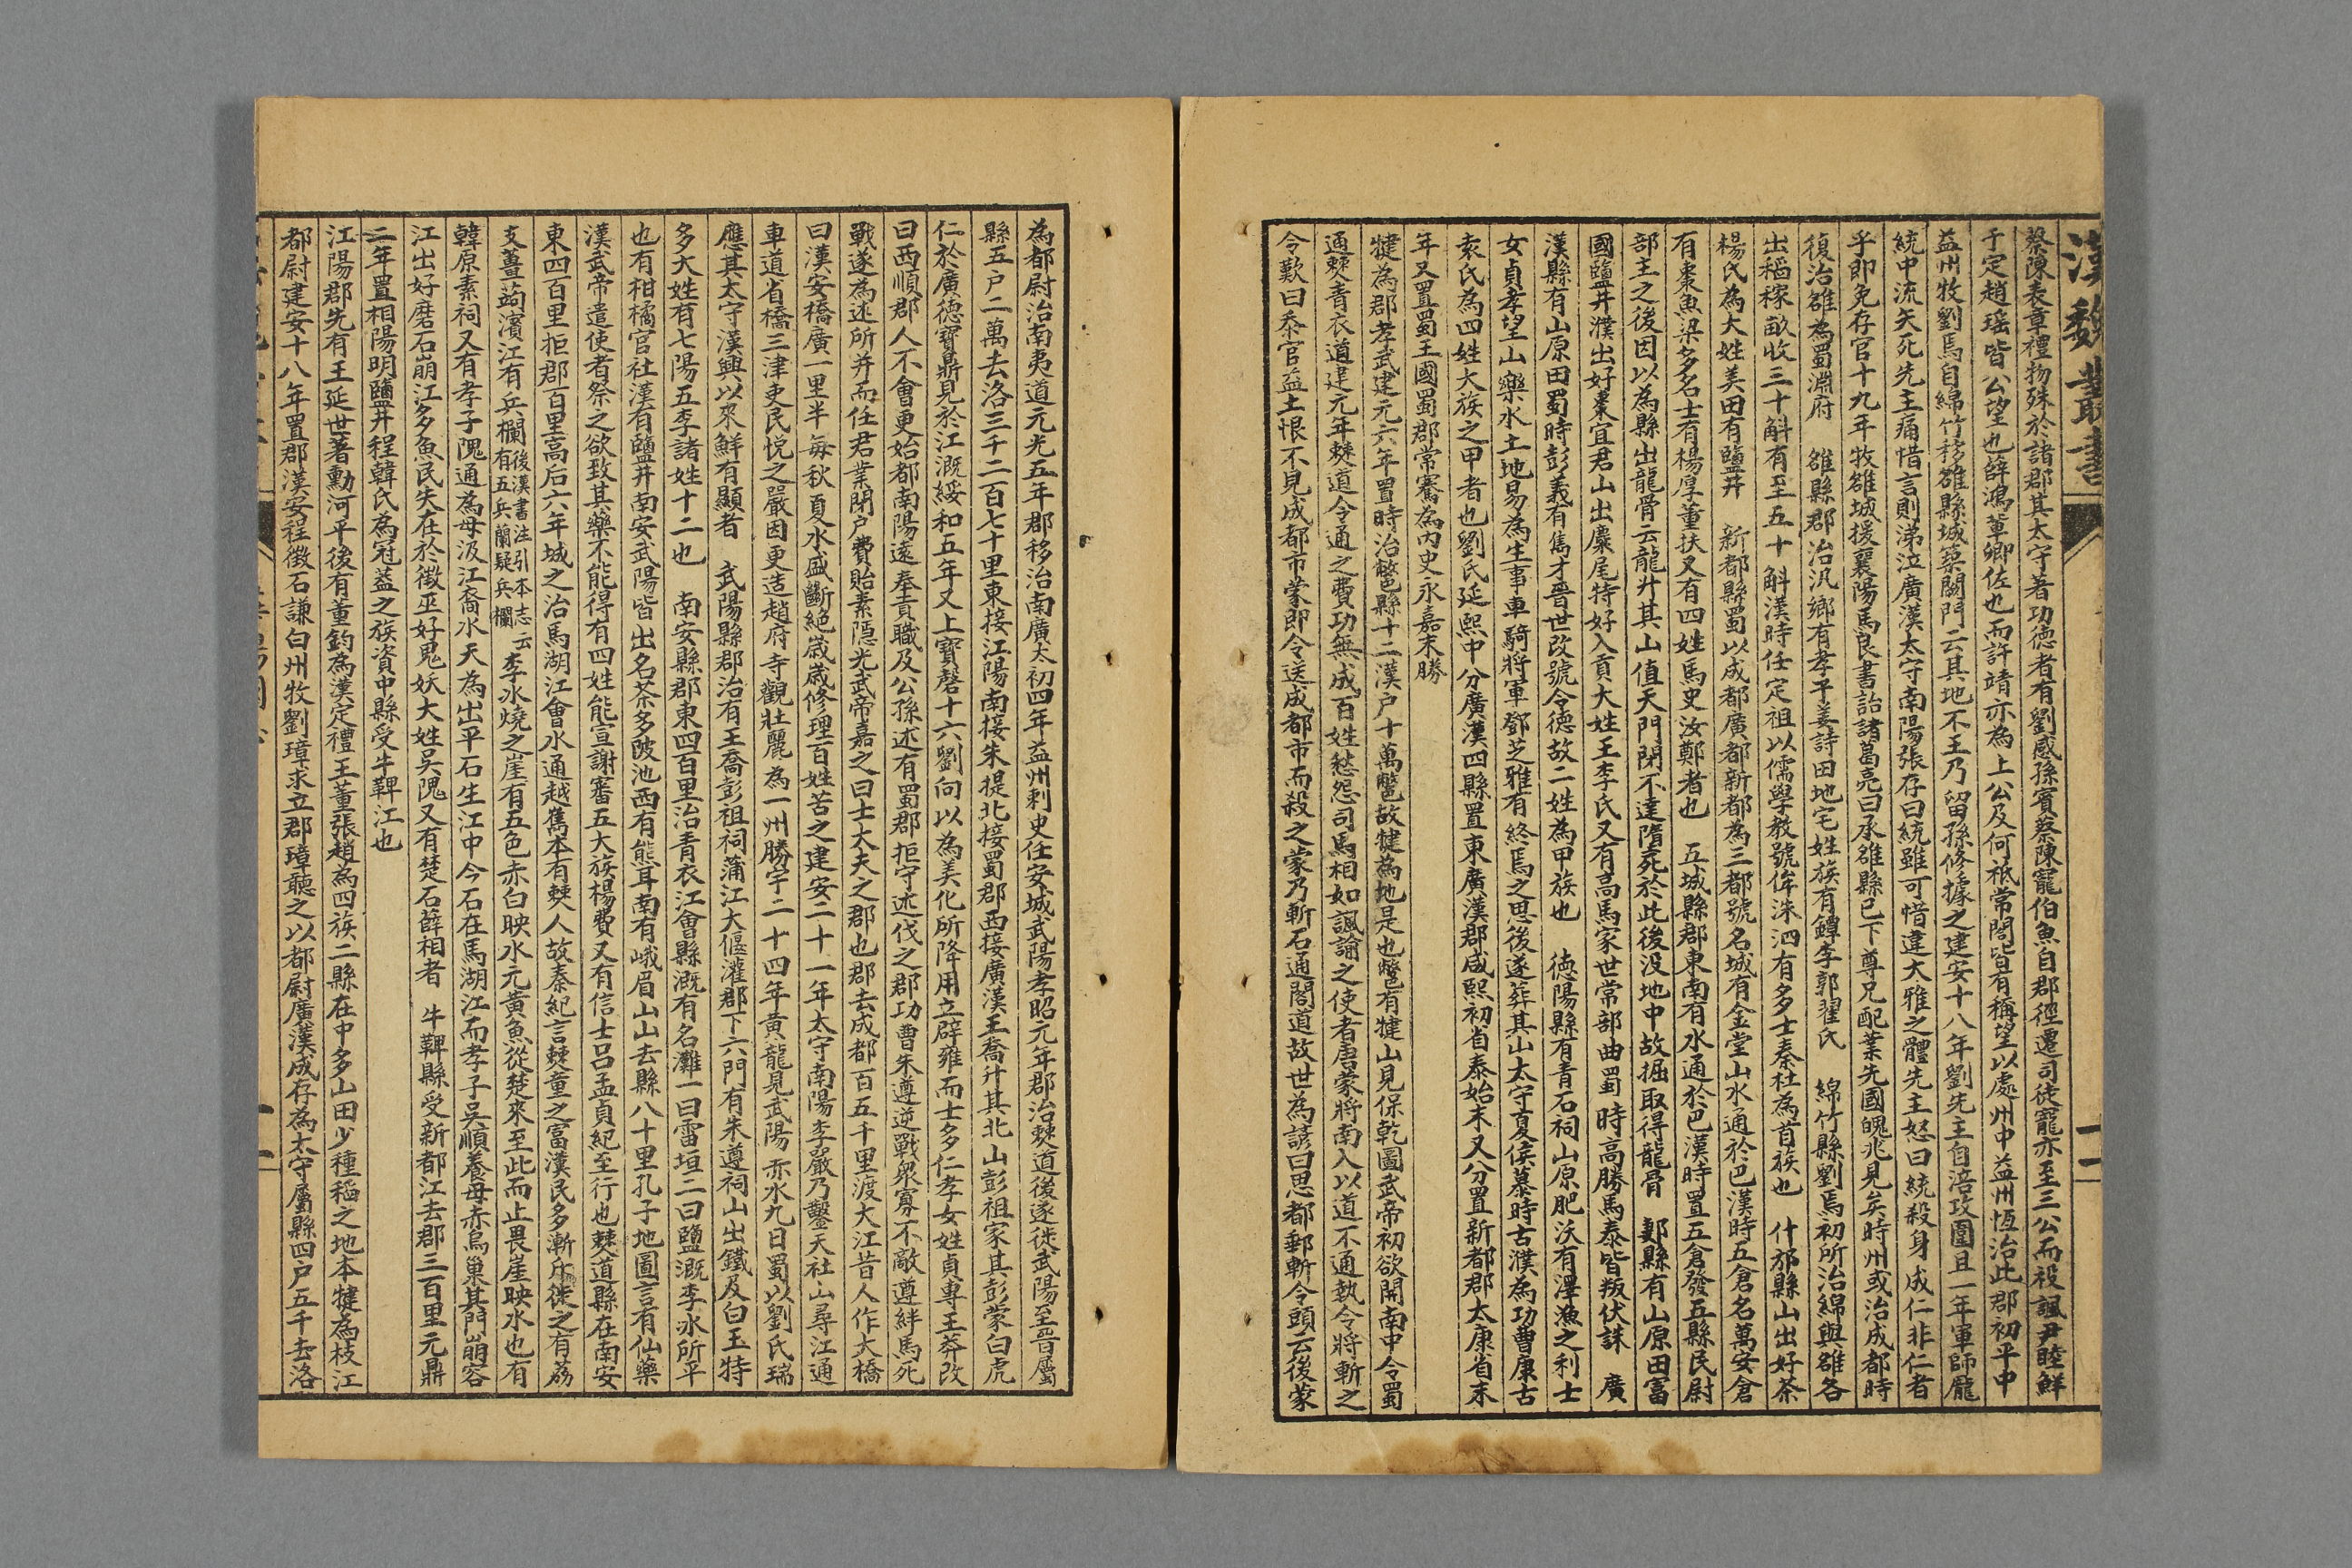 漢魏叢書
蔡陳表章禮物殊於諸郡其太守著功德者有劉感孫賓蔡陳寵伯魚自郡徑遷司徒寵亦至三公而祋諷尹睦鮮
于定趙瑶皆公望也薛鴻輩卿佐也而許靖亦為上公及何祗常閎皆有稱望以處州中益州恆治此郡初平中
益州牧劉焉自綿竹移雒縣城築闕門云其地不王乃留孫修據之建安十八年劉先主自涪攻圍且一年軍師龐
統中流矢死先主痛惜言則涕泣廣漢太守南陽張存曰統雖可惜違大雅之體先主怒曰統殺身成仁非仁者
乎即免存官十九年牧雒城援襄陽馬良書詒諸葛亮曰承雒縣已下尊兄配業先國魄兆見矣時州或治成都時
復治雒為蜀淵府　雒縣郡治汎鄉有孝子姜詩田地宅姓族有鐔李郭翟氏　綿竹縣劉焉初所治綿與雒各
出稻稼畝收三十斛有至五十斛漢時任定祖以儒學教號侔洙泗有多士秦杜為首族也　什邡縣山出好茶
楊氏為大姓美田有鹽井　新都縣蜀以成都廣都新都為三都號名城有金堂山水通於巴漢時五倉名萬安倉
有棗魚梁多名士有楊厚董扶又有四姓馬史汝鄭者也　五城縣郡東南有水通於巴漢時置五倉發五縣民尉
部主之後因以為縣出龍骨云龍升其山值天門閉不達隋死於此後没地中故掘取得龍骨　郪縣有山原田富
國鹽井濮出好棗宜君山出麋尾特好入貢大姓王李氏又有高馬家世掌部曲蜀時高勝馬泰皆叛伏誅　廣
漢縣有山原田蜀時彭羲有雋才晉世改號令德故二姓為甲族也　德陽縣有青石祠山原肥沃有澤漁之利士
女貞孝望山樂水土地易為生事車騎將軍鄧芝雅有終焉之思後遂葬其山太守夏侯慕時古濮為功曹康古
袁氏為四姓大族之甲者也劉氏延熙中分廣漢四縣置東廣漢郡咸熙初省泰始末又分置新都郡太康省末
年又置蜀王國蜀郡常騫為內史永嘉末勝
犍為郡孝武建元六年置時治鼈縣十二漢户十萬鼈故犍為地是也鼈有犍山見保乾圖武帝初欲開南中令蜀
通僰青衣道建元年僰道令通之費功無成百姓愁怨司馬相如諷諭之使者唐蒙將南入以道不通執令將斬之
令歎曰忝官益土恨不見成都市蒙即令送成都市而殺之蒙乃斬石通閣道故世為諺曰思都郵斬令頭云後蒙
為都尉治南夷道元光五年郡移治南廣太初四年益州刺史任安城武陽孝昭元年郡治僰道後遂徙武陽至晉屬
縣五户二萬去洛三千二百七十里東接江陽南接朱提北接蜀郡西接廣漢王喬升其北山彭祖家其彭蒙白虎
仁於廣德寶鼎見於江溉綏和五年又上寶磬十六劉向以為美化所降用立辟雍而士多仁孝女姓貞專王莽改
曰西順郡人不會更始都南陽遠奉貢職及公孫述有蜀郡拒守述伐之郡功曹朱遵逆戰衆寡不敵遵絆馬死
戰遂為述所并而任君業閉户費貽素隱光武帝嘉之曰士大夫之郡也郡去成都百五千里渡大江昔人作大橋
曰漢安橋廣一里半每秋夏水盛斷絕歲歲修理百姓苦之建安二十一年太守南陽李嚴乃鑿天社山尋江通
車道省橋三津吏民悅之嚴因更造趙府寺觀壯麗為一州勝宇二十四年黃龍見武陽赤水九日蜀以劉氏瑞
應其太守漢興以來鮮有顯者　武陽縣郡治有王喬彭祖祠蒲江大偃灌郡下六門有朱遵祠山出鐵及白玉特
多大姓有七陽五李諸姓十二也　南安縣郡東四百里治青衣江會縣溉有名灘一曰雷垣二曰鹽溉李冰所平
也有柑橘官社漢有鹽井南安武陽皆出名茶多陂池西有熊耳南有峨眉山山去縣八十里孔子地圖言有仙藥
漢武帝遣使者祭之欲致其藥不能得有四姓能宣謝審五大族楊費又有信士呂孟貞紀至行也僰道縣在南安
東四百里拒郡百里高后六年城之治馬湖江會水通越嶲本有僰人故秦紀言僰童之富漢民多漸斥徙之有荔
支薑蒟濱江有兵欄後漢書注引本志云有五兵蘭疑兵欄李冰燒之崖有五色赤白映水元黃魚從楚來至此而止畏崖映水也有
韓原素祠又有孝子隗通為母汲江裔水天為出平石生江中今石在馬湖江而孝子吳順養母赤烏巢其門崩容
江出好磨石崩江多魚民失在於徵巫好鬼妖大姓吳隗又有楚石薛相者　牛鞞縣受新都江去郡三百里元鼎
二年置相陽明鹽井程韓氏為冠蓋之族資中縣受牛鞞江也
江陽郡先有王延世著勳河平後有董鈞為漢定禮王董張趙為四族二縣在中多山田少種稻之地本犍為枝江
都尉建安十八年置郡漢安程徵石謙白州牧劉璋求立郡璋聽之以都尉廣漢成存為太守屬縣四户五千去洛